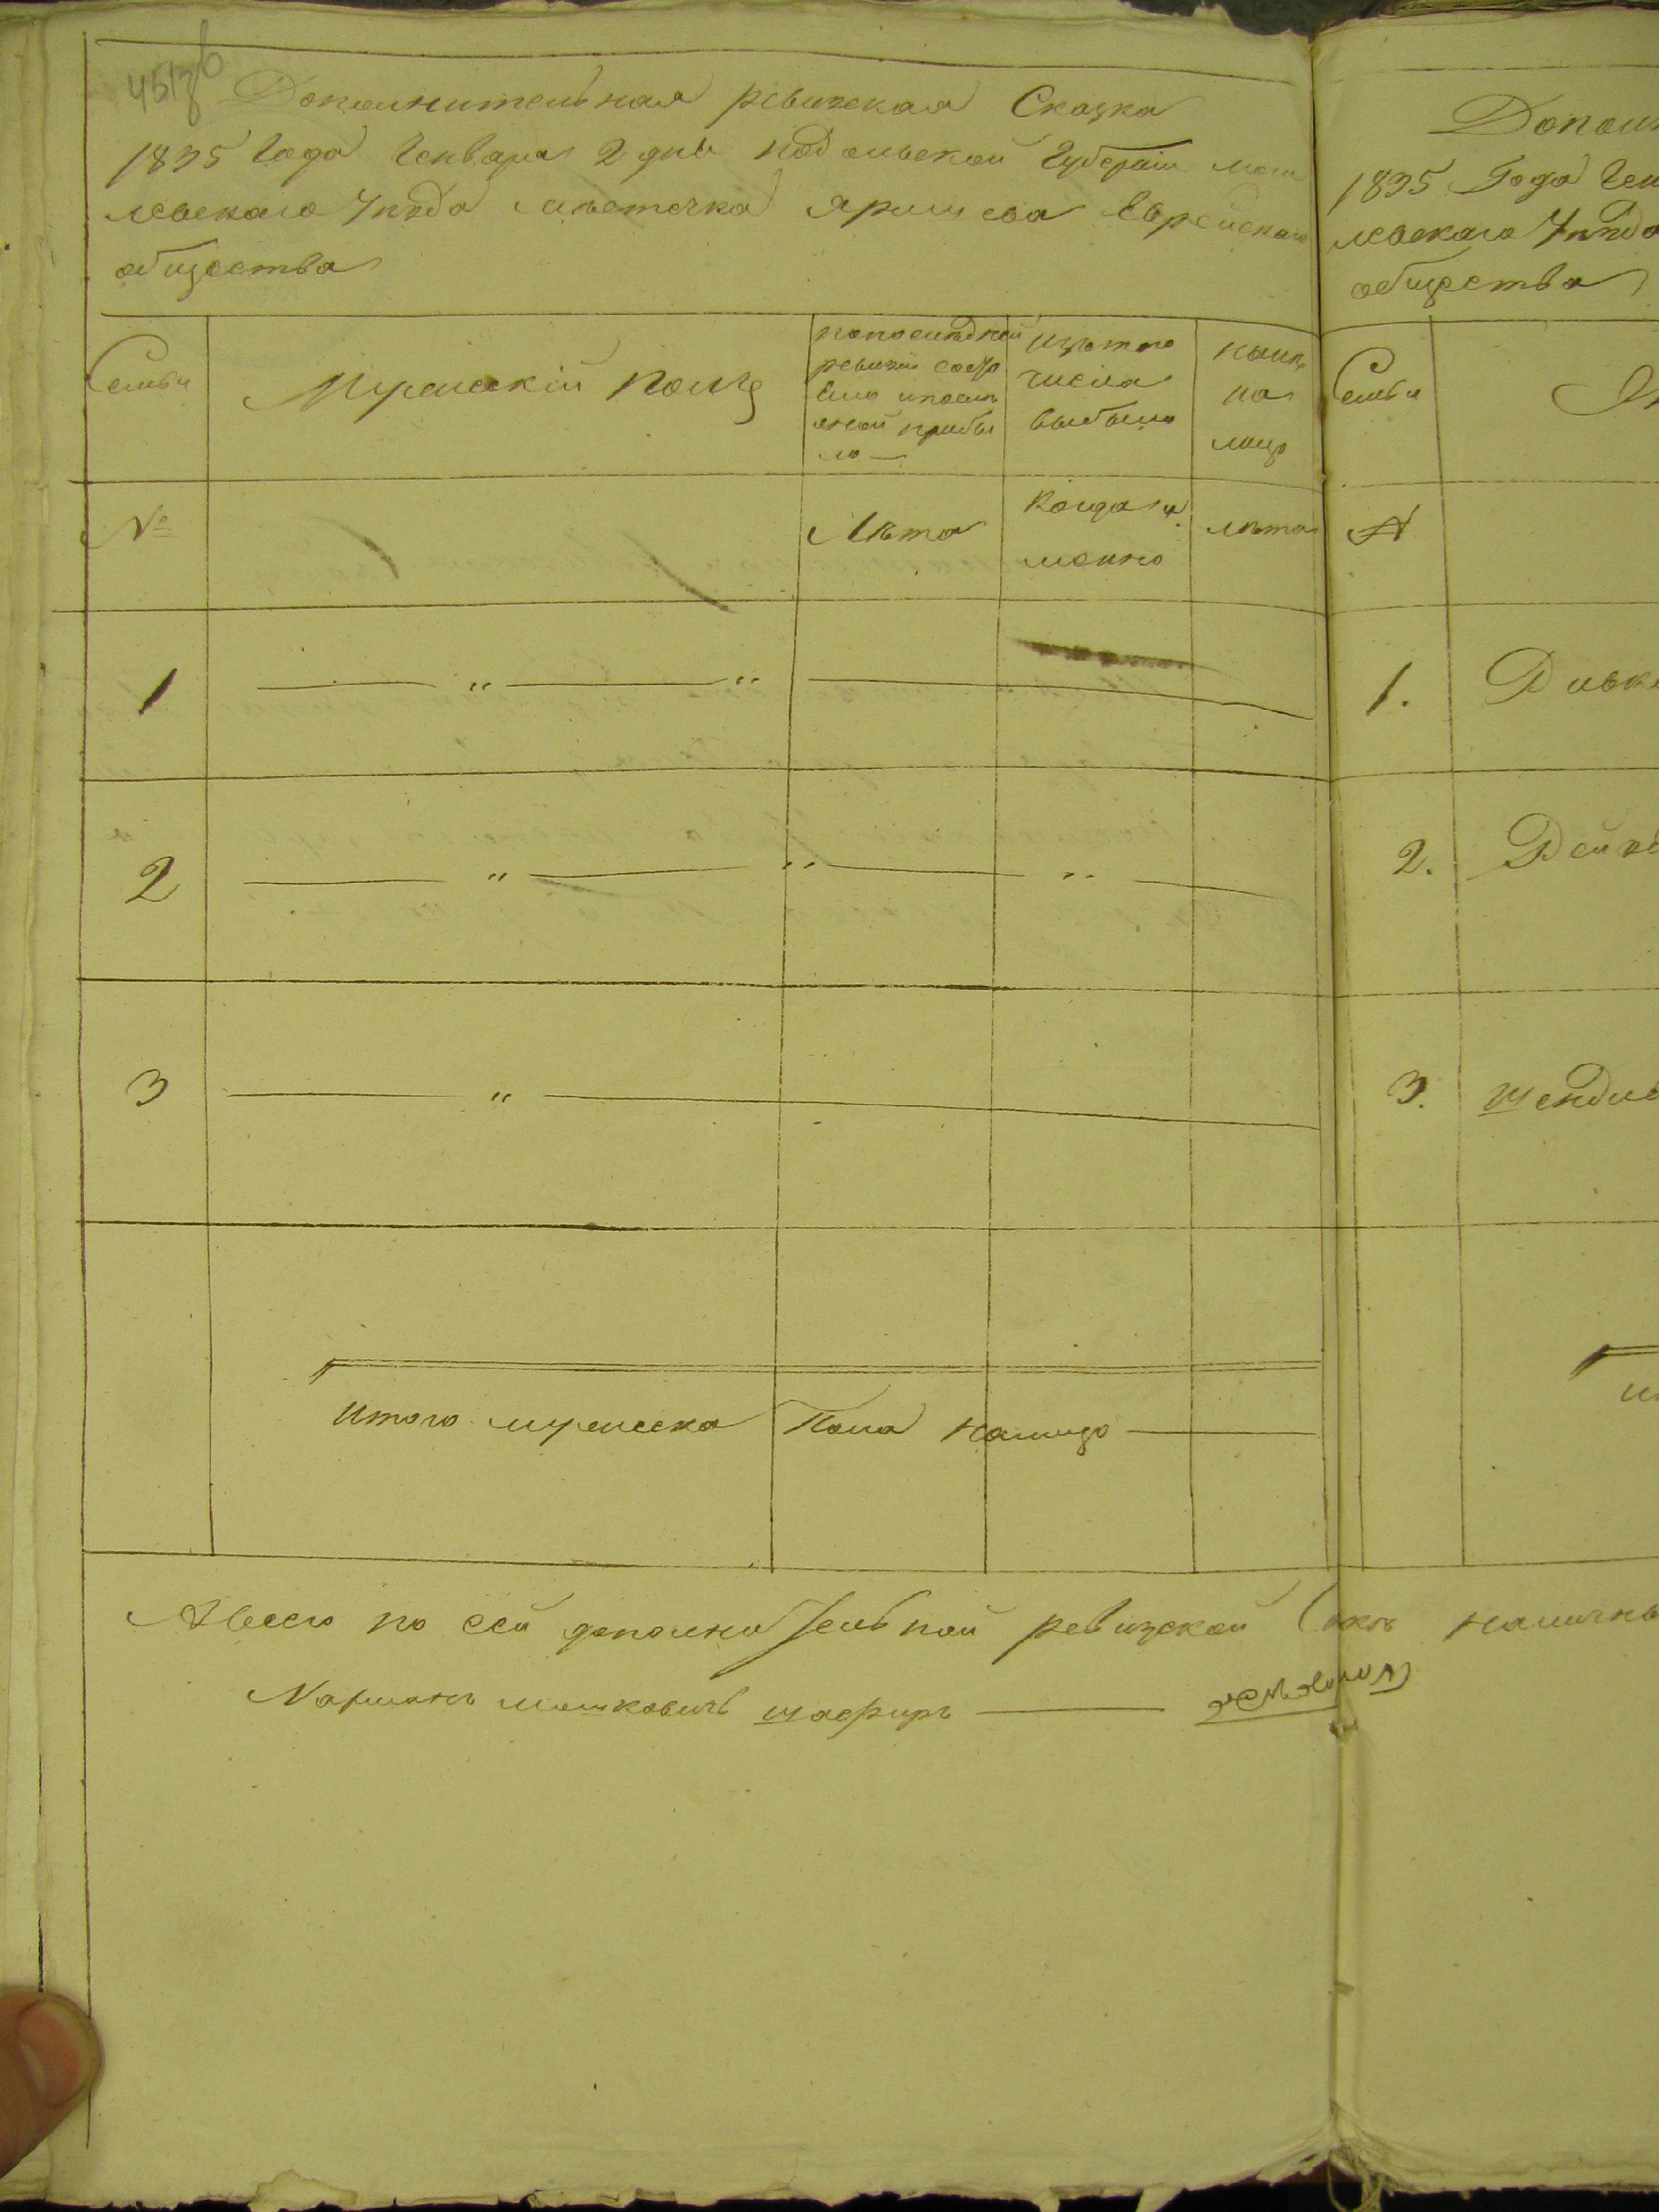 Дополнительная ревизская Сказка
1835 Года Генваря 2 дня подольской Губернии моги
левскаго Уезда местечка Яришева Еврейскаго
общества
Семьи
Мужескій полъ
по последней
ревизіи состо
яло и после
оной прибы
ло —
Изъ того
числа
выбыло
ныне
на
лицо
№
Лета
Когда и
менно
лета
1
2
3
Итого мужеска Пола налицо
А всего по сей дополнительной ревизской наличны
Мошковичъ Шафиръ
Допол
1835 Года Ген
левскаго Уезда
общества
Семьи
1.
2.
3. Шендле